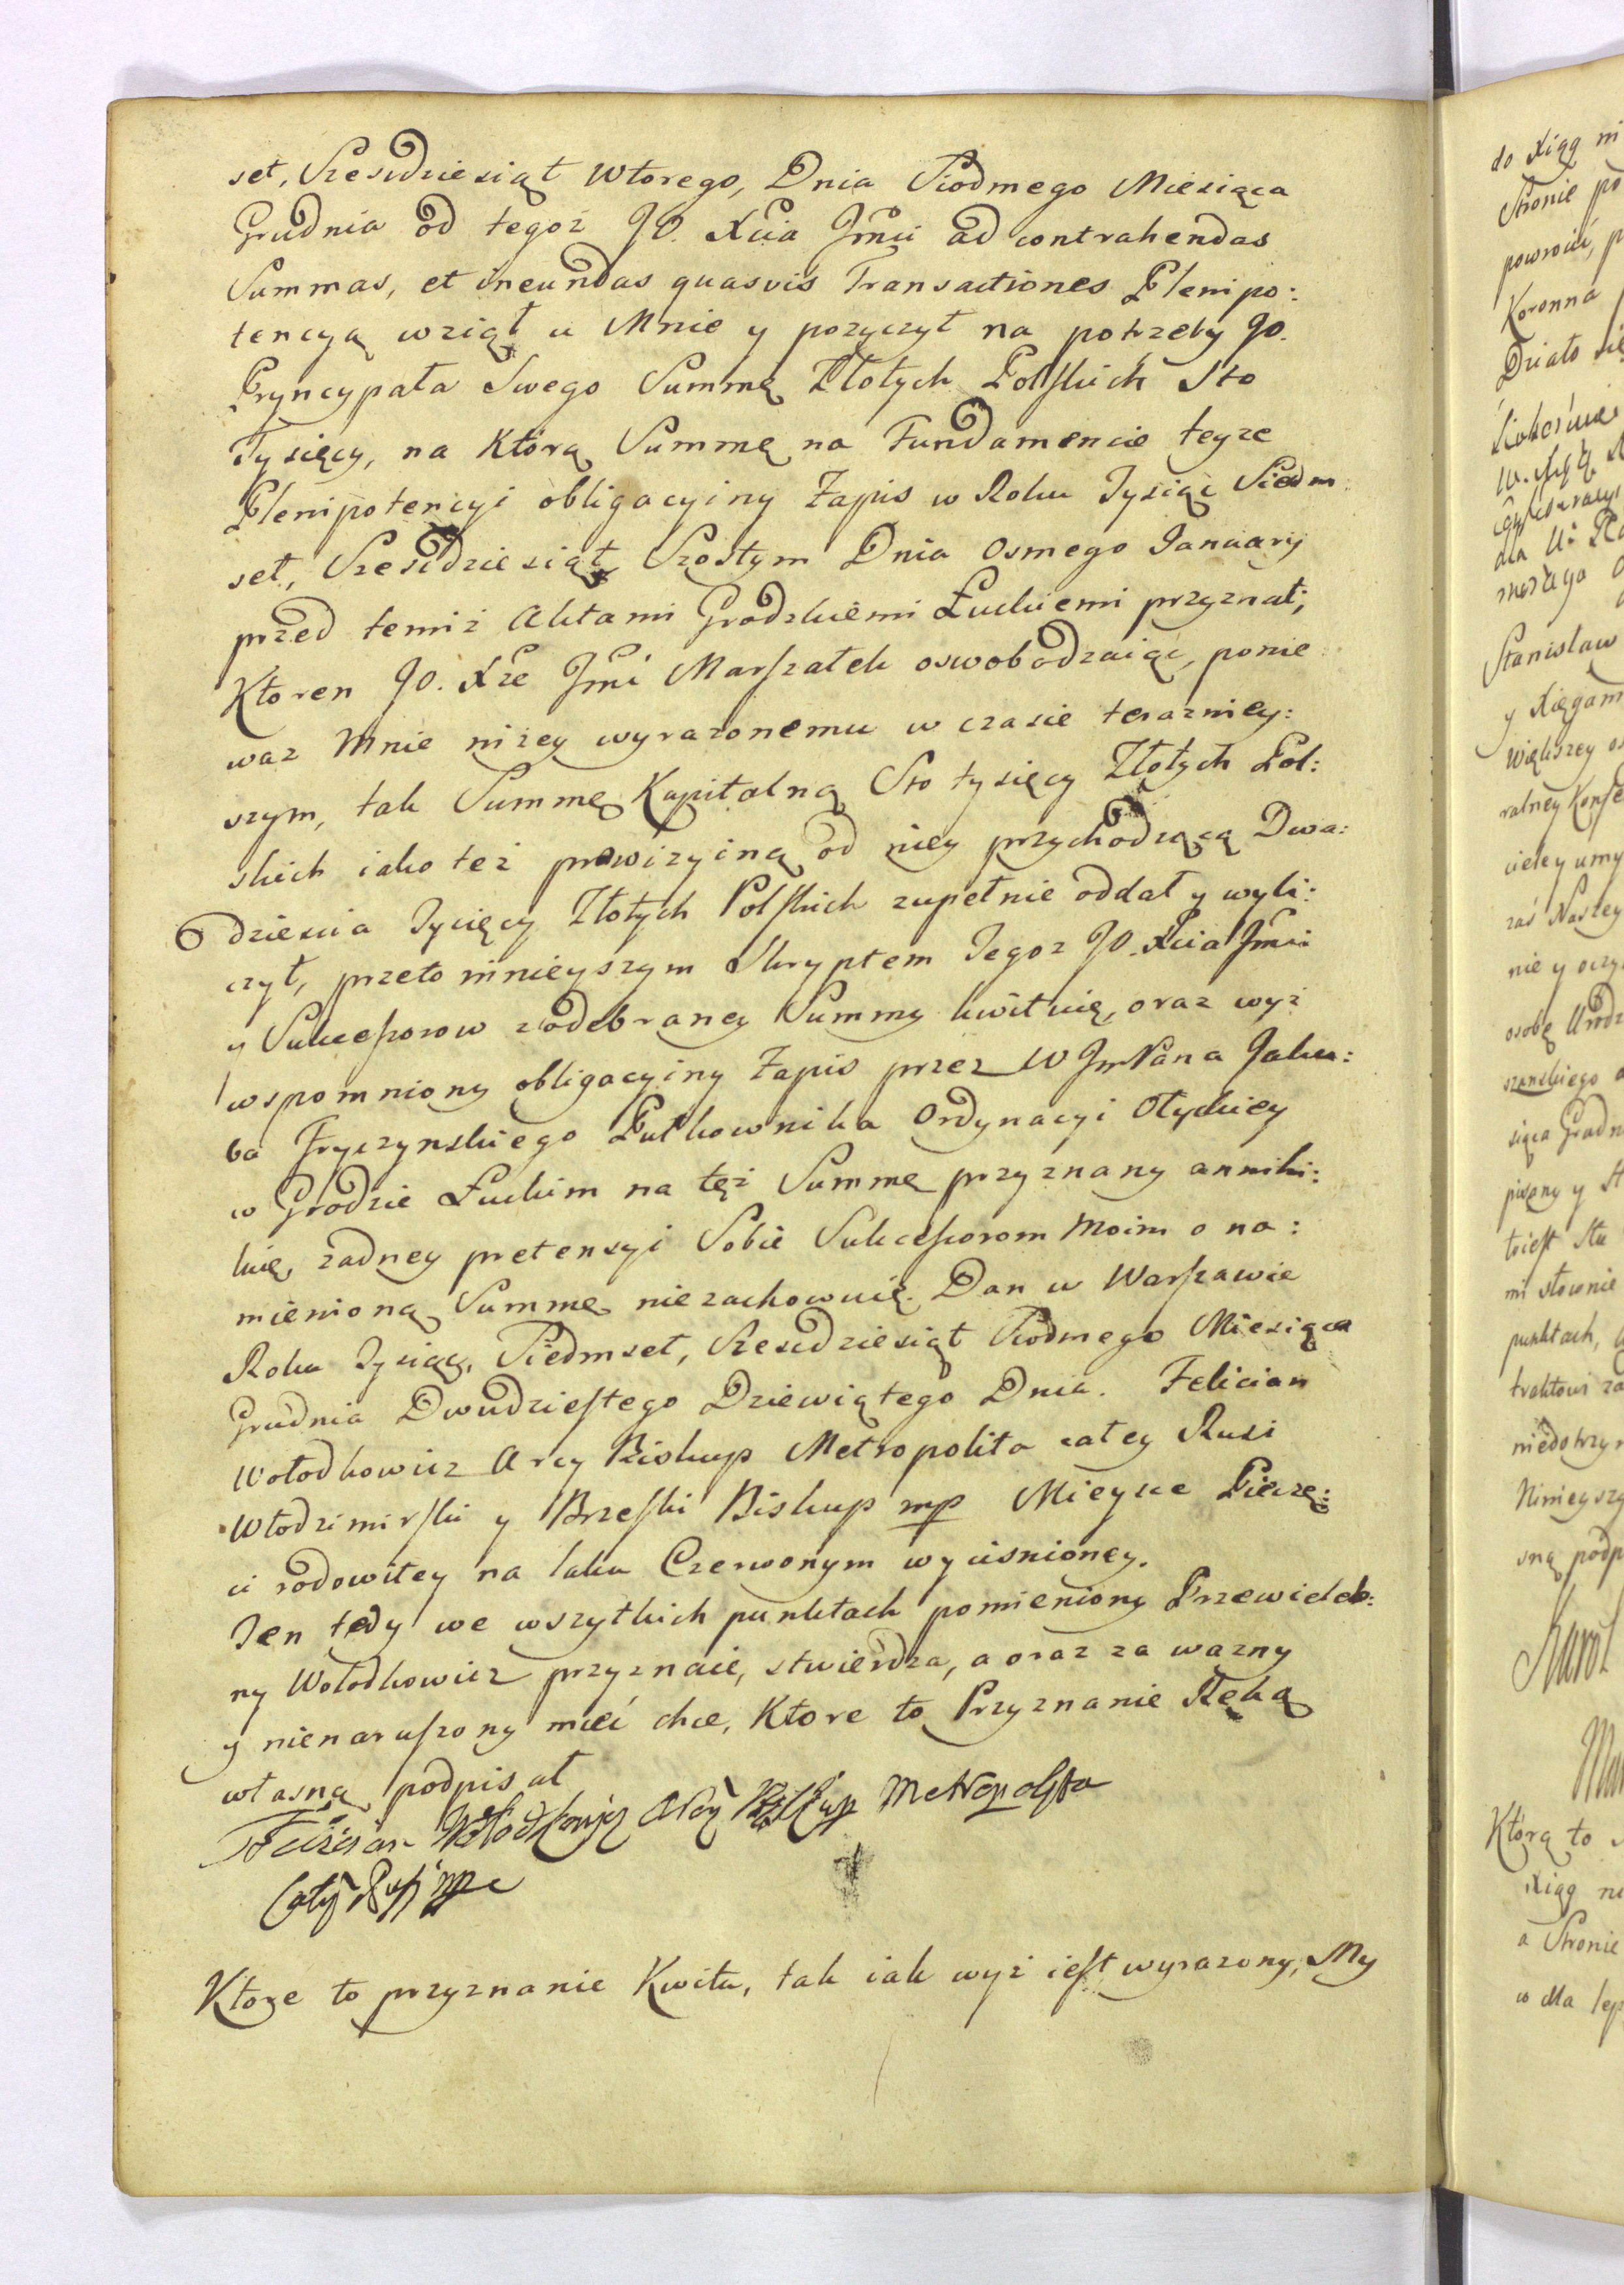 set, Szescdziesiąt wtorego, Dnia Siodmego Miesiąca
Grudnia od tegoż JO. Xcia Jmci ad contrahendas
Summas, et ineundas quasvis Transactiones Plenipo:
tencyą wziął u Mnie y pozyczył na potrzeby JO.
Pryncypała Swego Summę Złotych Polskich Sto
Tysięcy, na Ktorą Summę na Fundamencie teyze
Plenipotencyi obligacyiny Zapis w Roku Tysiąc Siedm
set, Szescdziesiąt Szostym Dnia Osmego January
przed temiż Aktami Grodzkiemi Łuckiemi przyznał,
Ktoren JO. Xże Jmć Marszałek oswobodzaiąc, ponie
waz Mnie nizey wyrazonemu w czasie terazniey:
szym, tak Summę Kapitalną Sto tysięcy Złotych Pol:
skich iako też prowizyiną od niey przychodzącą Dwa:
dziescia Tysięcy Złotych Polskich zupełnie oddał y wyli:
czył, przeto ninieyszym Skryptem Tegoz JO. Xcia Jmci
y Sukcessorow z odebraney Summy kwituię, oraz wyż
wspomniony obligacyiny Zapis przez W JmPana Jaku:
ba Fryczynskiego Pułkownika Ordynacyi Ołyckiey
w Grodzie Łuckim na tęż Summę przyznany annihi:
luię, zadney pretensyi Sobie Sukcessorom Moim o na:
mienioną Summę niezachowuię. Dan w Warszawie
Roku Tysiąc, Siedmset, Szescdziesiąt Siodmego Miesiąca
Grudnia Dwudziestego Dziewiątego Dnia. Felician
Wołodkowicz Arcy Biskup Metropolita całey Rusi
Włodzimirski y Brzeski Biskup mp Mieysce Pieczę:
ci rodowitey na laku Czerwonym wyciśnioney.
Ten tedy we wszytkich punktach pomieniony Przewieleb:
ny Wołodkowicz przyznaie, stwierdza, a oraz za wazny
y nienaruszony mieć chce, Ktore to Przyznanie Ręką
własną podpisał
Felician Wołodkowicz Arcy Biskup Metropolita
Całey Rusi mp
Ktore to przyznanie Kwitu, tak iak wyż iest wyrazony, My
do Xiąg
Stronie
Koronna
Działo się
Stanisław
y Xięgam
Większey
zaś Naszey
osobę
siąca Grudn
mi słownie
punktach,
Karol
Ktorą to
Xiąg
a Stronie